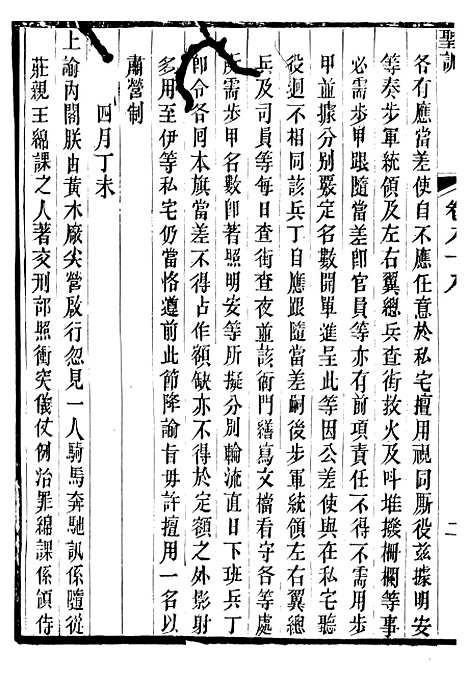 聖訓
卷八十八
二
各有應當差使自不應任意於私宅擅用視同廝役茲據明安
等奏步軍統領及左右翼總兵查街救火及呌堆撥柵欄等事
必需步甲跟隨當差卽官員等亦有前項責任不得不需用步
甲並據分別褁定名數開單進呈此等因公差使與在私宅聽
役迥不相同該兵丁目應跟隨當差嗣後步軍統領左右翼總
兵及司員等每日查街查夜並該衙門繕寫文檔看守各等處
所需步甲名數卽著照明安等所擬分別輪流直日下班兵丁
卽令各回本旗當差不得占作額缺亦不得於定額之外影射
多用至伊等私宅仍當恪遵前此節降諭旨毋許擅用一名以
肅營制
四月丁未
上諭內閣朕由黃木廠尖營啟行忽見一人騎馬奔馳訊係隨從
莊親王綿課之人著交刑部照衝突儀仗例治罪綿課係領侍